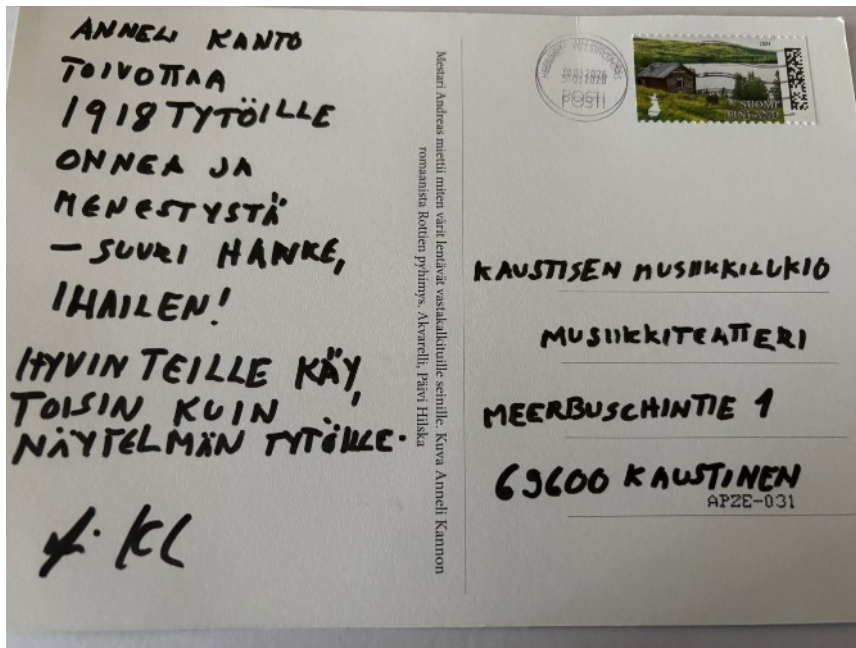 ANNELI KANTO
TOIVOTTAA
1918 TYTÖILLE
ONNEA JA
MENESTYSTÄ
— SUURI HANKE,
IHAILEN!
HYVIN TEILLE KÄY,
TOISIN KUIN
NÄYTELMÄN TYTÖILLE.
Mestari Andreas miettii miten värit lentävät vastakalkituille seinille. Kuva Anneli Kannon
romaanista Rottien pyhimys. Akvarelli, Päivi Hilska
HELSINKI HELSINGFORS
POSTI
SUOMI
FINLAND
KAUSTISEN MUSIIKKILUKIO
MUSIIKKITEATTERI
MEERBUSCHINTIE 1
69600 KAUSTINEN
APZE-031